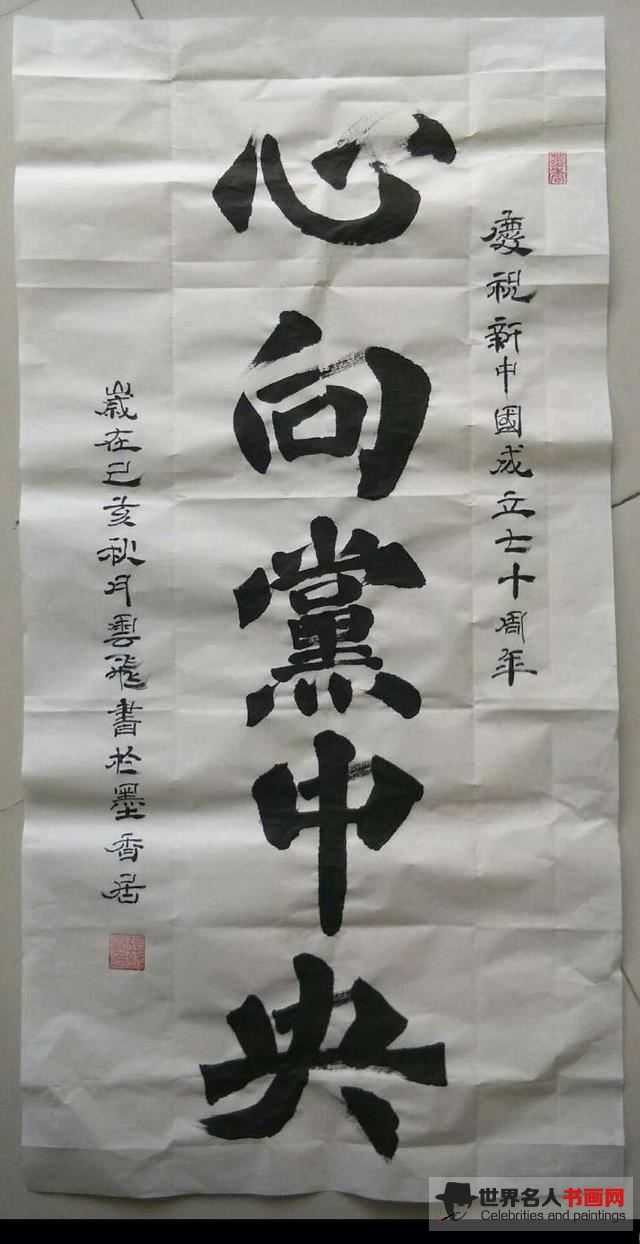 慶祝新中國成立七十周年
心向黨中央
歲在己亥秋月雲飛書於墨香居
世界名人书画网
Celebrities and paintings